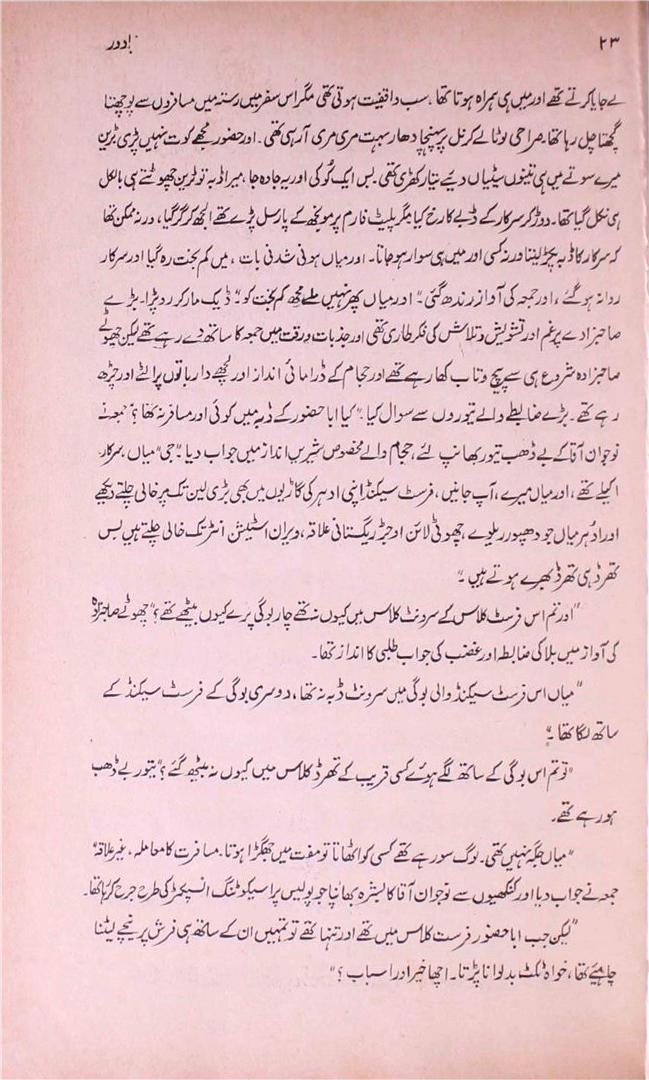 ۲۳
دور
لے جایا کرتے تھے اور میں ہی ہمراہ ہوتا تھا، سب واقفیت ہوتی تھی مگر اس سفر میں رستہ میں مسافروں سے پوچھتا
گچھتا چل رہا تھا۔ صراحی لوٹا لے کر نل پر پہنچا دھار بہت مری مری آرہی تھی۔ اور حضور مجھے کوت نہیں پڑی ٹرین
میرے سوتے میں ہی تینوں سیٹیاں دیئے تیار کھڑی تھی۔ بس ایک کُو کی اور یہ جا وہ جا، میرا ڈبہ تو ٹرین چھوٹتے ہی بالکل
ہی نکل گیا تھا۔ دوڑ کر سرکار کے ڈبے کا رخ کیا مگر پلیٹ فارم پر مونجھ کے پارسل پڑے تھے الجھ کر گر گیا، ورنہ ممکن تھا
کہ سرکار کا ڈبہ پکڑ لیتا ورنہ کسی اور میں ہی سوار ہو جاتا۔ اور میاں ہونی شدنی بات، میں کم بخت رہ گیا اور سرکار
روانہ ہو گئے، اور جمعہ کی آواز رندھ گئی۔" اور میاں پھر نہیں ملے مجھ کم بخت کو۔" ڈیک مار کر رو پڑا۔ بڑے
صاحبزادے پر غم اور تشویش و تلاش کی فکر طاری تھی اور جذبات ورقت میں جمعہ کا ساتھ دے رہے تھے لیکن چھوٹے
صاحبزادہ شروع ہی سے پیچ و تاب کھا رہے تھے اور حجام کے ڈرامائی انداز اور لچھے دار باتوں پر اینٹھے اور چڑھ
رہے تھے۔ بڑے ضابطے والے تیوروں سے سوال کیا۔ "کیا ابا حضور کے ڈبہ میں کوئی اور مسافر نہ تھا؟" جمعہ نے
نوجوان آقا کے بے ڈھب تیور بھانپ لئے، حجام والے مخصوص شیریں انداز میں جواب دیا۔ "جی میاں، سرکار
اکیلے تھے، اور میاں میرے، آپ جانیں، فرسٹ سیکنڈ اپنی ادہر کی گاڑیوں میں بھی بڑی لین تک پر خالی چلتے دیکھے
اور ادُہر میاں جودھپور ریلوے، چھوٹی لائن اوجڑ ریگستانی علاقہ، ویران اسٹیشن انٹر تک خالی چلتے ہیں بس
تھرڈ ہی تھرڈ بھرے ہوتے ہیں۔"
"اور تم اس فرسٹ کلاس کے سرونٹ کلاس میں کیوں نہ تھے چار بوگی پرے کیوں بیٹھے تھے؟" چھوٹے صاحبزادہ
کی آواز میں بلا کی ضابطہ اور غضب کی جواب طلبی کا انداز تھا۔
"میاں اس فرسٹ سیکنڈ والی بوگی میں سرونٹ ڈبہ نہ تھا، دوسری بوگی کے فرسٹ سیکنڈ کے
ساتھ لگا تھا۔"
"تو تم اس بوگی کے ساتھ لگے ہوئے کسی قریب کے تھرڈ کلاس میں کیوں نہ بیٹھ گئے؟" تیور بے ڈھب
ہو رہے تھے۔
"میاں جگہ نہیں تھی۔ لوگ سو رہے تھے کسی کو اٹھاتا تو مفت میں جھگڑا ہوتا۔ مسافرت کا معاملہ، غیر علاقہ"
جمعہ نے جواب دیا اور کنکھیوں سے نوجوان آقا کا بشرہ بھانپا جو پولیس پراسیکوٹنگ انسپکٹر کی طرح جرح کر رہا تھا۔
"لیکن جب ابا حضور فرسٹ کلاس میں تھے اور تنہا تھے تو تمہیں ان کے ساتھ ہی فرش پر نیچے لیٹنا
چاہیئے تھا، خواہ ٹکٹ بدلوانا پڑتا۔ اچھا خیر اور اسباب؟"